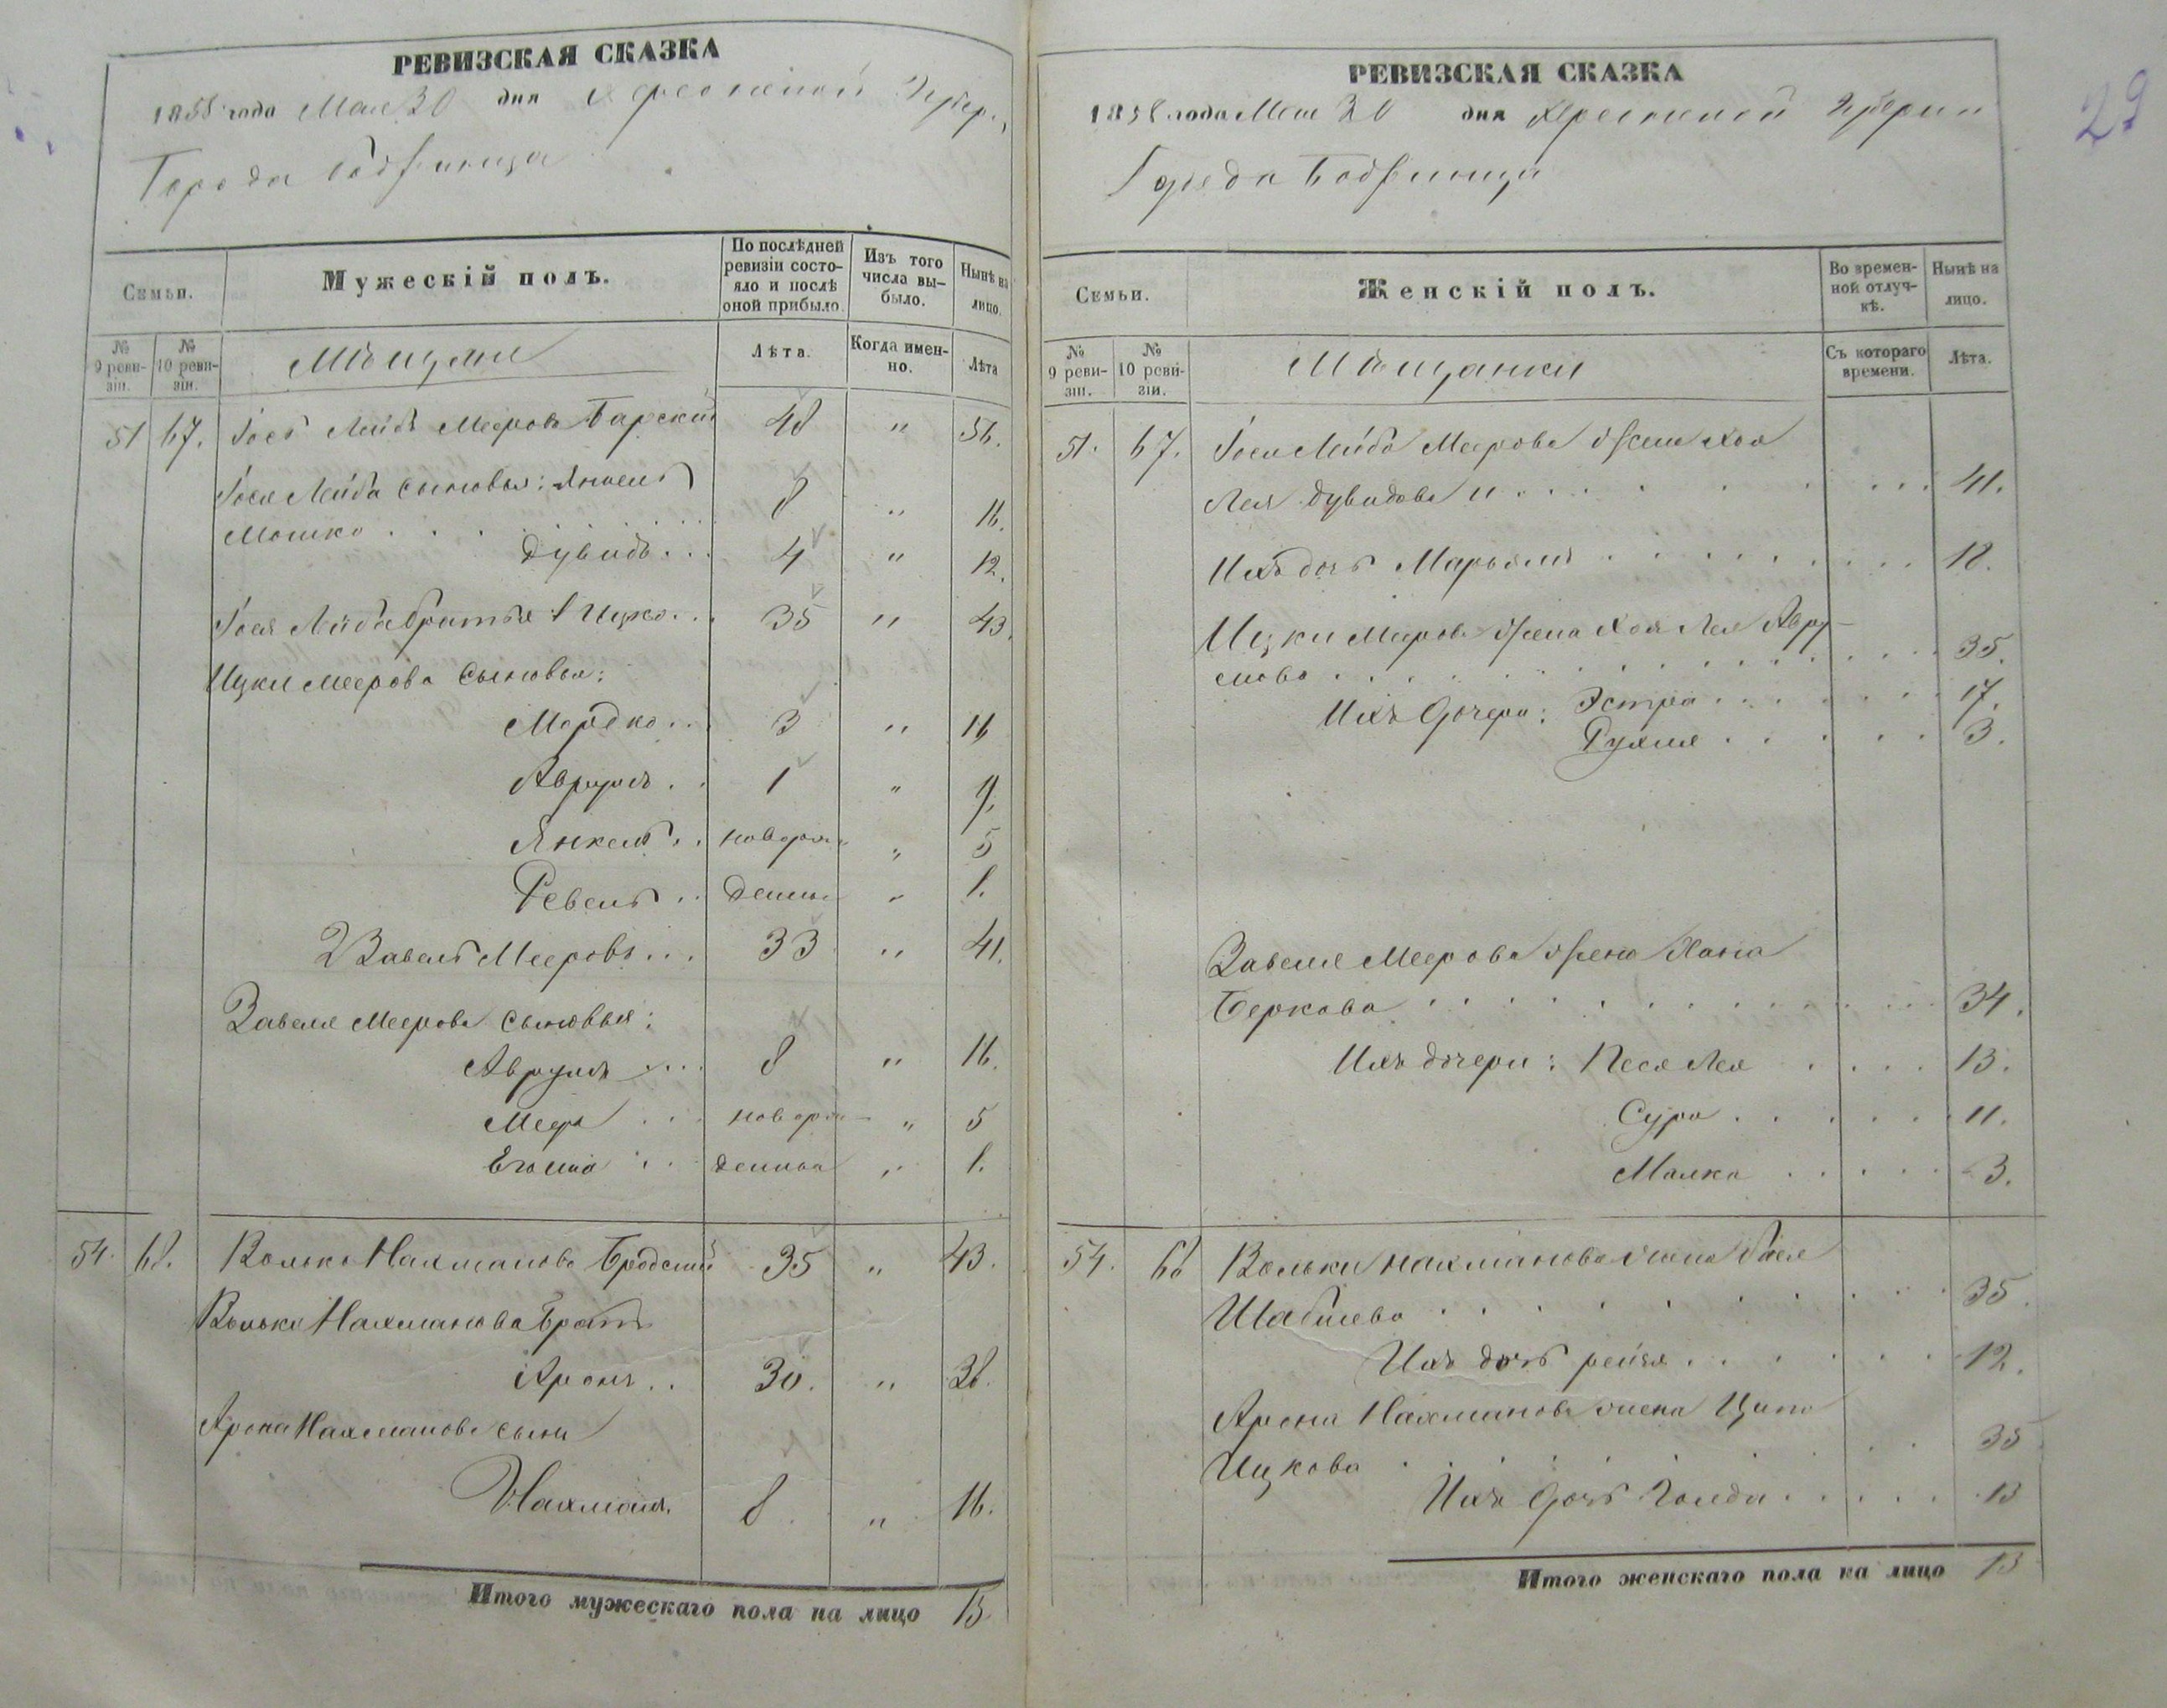 РЕВИЗСКАЯ СКАЗКА
1858 года Мая 30 дня Херсонской Губер.
Города Бобринца
Семьи.
Мужескій полъ.
По послѣдней ревизіи состояло и послѣ оной прибыло.
Изъ того числа вы-было.
Нынѣ на лицо.
№ 9 реви-зіи.
№ 10 реви-зіи.
Мѣщане
Лѣта.
Когда имен-но.
Лѣта
51 67. Іось Лейба Мееровъ Барскій 48 " 56.
Іося Лейба сыновья: Янкель
Мошко . . . 8 " 16.
Дувидъ . . . 4 " 12.
Іося Лейба братья 1 Ицко . . . 35 " 43.
Ицки Меерова сыновья:
Мордко . . 3 " 11
Аврумъ . . 1 " 9.
Янкель . . новорож " 5
Ревель . . денны " 1.
2 Завель Мееровъ . . . 33 " 41.
Завеля Меерова сыновья:
Аврумъ . . . 8 " 16.
Меер . . . новорож — " 5
Егошиа . . денные " 1.
54. 68. Волько Нахмановъ Бродский 35 " 43.
Вольки Нахманова братъ
Аронъ . . 30. " 38.
Арона Нахманова сынъ
Нахманъ. 8. " 16.
Итого мужескаго пола на лицо 15
РЕВИЗСКАЯ СКАЗКА
29
1858 года Мая 30 дня Херсонской Губерніи
Города Бобринца
Семьи.
Женскій полъ.
Во времен-ной отлуч-кѣ.
Нынѣ на лицо.
№ 9 реви-зіи.
№ 10 реви-зіи.
Мѣщанки
Съ котораго времени.
Лѣта.
51. 67. Іося Лейба Меерова жена Хая
Лея Дувидова и . . . 41.
Ихъ дочь Марьямъ . . . 18.
Ицки Меерова жена Хая Лея Авру-
мова . . . 35.
Ихъ дочери: Эстра . . . 17.
Рухля . . . 3.
Завеля Меерова жена Хана
Беркова . . . 34.
Ихъ дочери: Песя Лея . . . 13.
Сура . . . 11.
Малка . . . 3.
54. 68 Вольки Нахманова жена Бася
Шабшева . . . 35.
Ихъ дочь Рейзя . . . 12.
Арона Нахманова жена Ципа
Ицкова . . . 35
Ихъ дочь Голда . . . 13
Итого женскаго пола на лицо 13